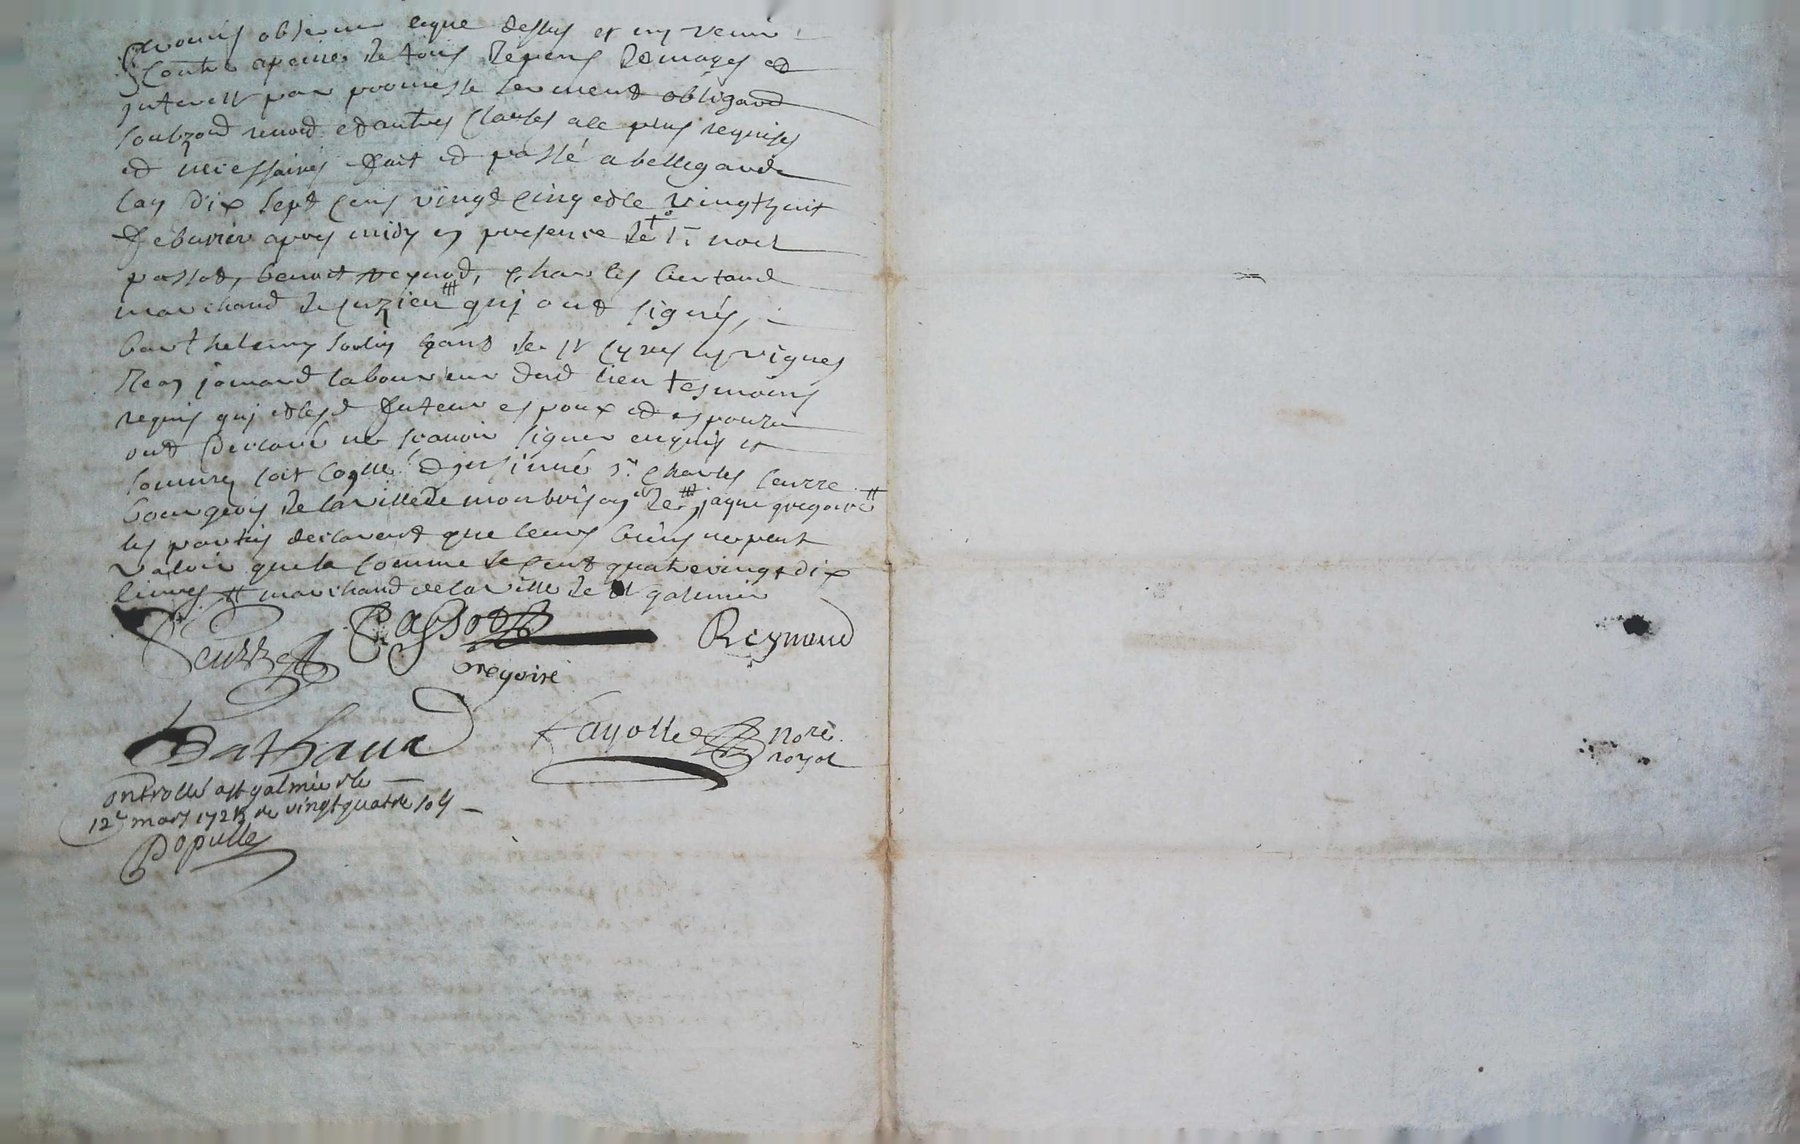 promis observer ceque dessus et ny venir
contre apeine de tous depens domages et
interest par promesse serment obligaõn
soubzon renonõn et autres clauses ale plus requises
et necessaires fait et passé a bellegarde
lan dix sept cens vingt cinq et le vingt huit
febvrier apres midy en presence de sr noel
passot, benoit reynod, charles bertand
marchand de cuzieu qui ont signés,
barthelemy soulin gant de st cyres les vignes
jean jomard laboureur dud lieu tesmoins
requis qui et lesd futeur espoux et espouze
ont declaré ne scavoir signer enquis et
sommes soit conlle et insinué sr charles leurre
bourgeois de la ville de monbrison et de jaque gregoire
les parties declarent que leurs biens ne peut
valoir que la somme de cent quatre vingt dix
livres marchand de la ville de st galmier
Leurre Passot Reynaud
Gregoire
Bathaud Fayolle nore
royol
controllé a st galmier le
12e mars 1725 r vingt quatre sols
Populle